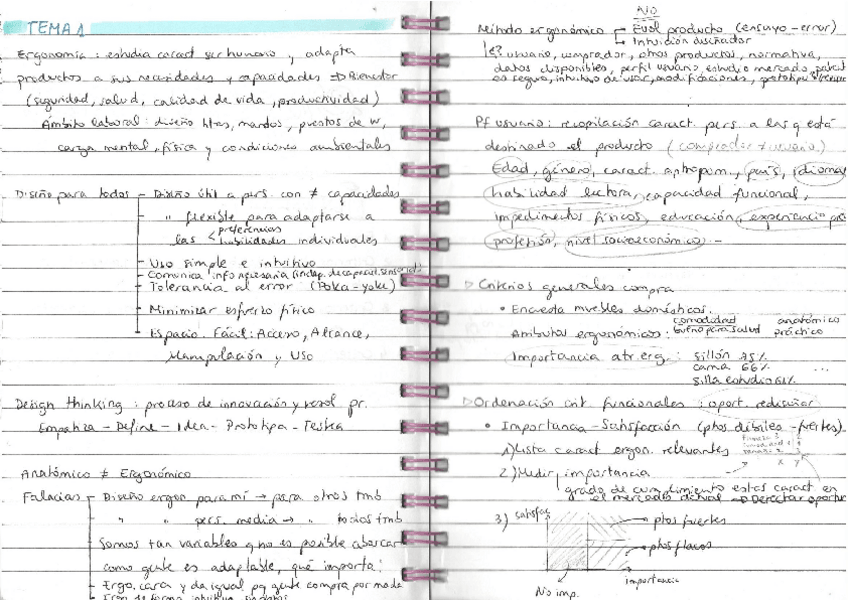 TEMA 1
Ergonomía : estudia caract ser humano y adapta
productos a sus necesidades y capacidades → Bienestar
(seguridad, salud, calidad de vida, productividad)
Ámbito laboral : diseño htas, mandos, puestos de w,
carga mental, física y condiciones ambientales
Diseño para todos - Diseño útil a pers. con ≠ capacidades
" flexible para adaptarse a
las < preferencias
habilidades individuales
- Uso simple e intuitivo
- Comunica info necesaria (indep. de capacid. sensorial)
- Tolerancia al error (Poka-yoke)
- Minimizar esfuerzo físico
- Espacio. Fácil: Acceso, Alcance,
Manipulación y Uso
Design thinking : proceso de innovación y resol pr.
Empatiza - Define - Idea - Prototipa - Testea
Anatómico ≠ Ergonómico
Falacias - Diseño ergon. para mí → para otros tmb
" " pers. media → " todos tmb
Somos tan variables q no es posible abarcar
como gente es adaptable, qué importa!
- Ergo. cara y da igual pq gente compra por moda
- Ergo de forma intuitiva
NO
Método ergonómico - Eval producto (ensayo-error)
- Intuición diseñador
usuario, comprador, otros productos, normativa,
datos disponibles, perfil usuario, estudio mercado,
es seguro, intuitivo de usar, modificaciones, prototipo
Pf usuario : recopilación caract. pers. a las q está
destinado el producto (comprador ≠ usuario)
Edad, género, caract. antropom., país, idioma
habilidad lectora, capacidad funcional,
impedimentos físicos, educación, experiencia
profesión, nivel socioeconómico -
▷ Criterios generales compra
• Encuesta muebles domésticos.
Atributos ergonómicos : comodidad anatómico
bueno para salud práctico
Importancia atr. erg. : sillón 75%
cama 66% ...
silla estudio 61%
▷ Ordenación crit. funcionales : oport. rediseñar
• Importancia - Satisfacción (ptos. débiles - fuertes)
1) Lista caract ergon. relevantes
2) Medir importancia x y
grado de cumplimiento estas caract en
el mercado actual → Detectar oportun
3) satisfac.
→ ptos fuertes
→ ptos flacos
importancia
No imp.